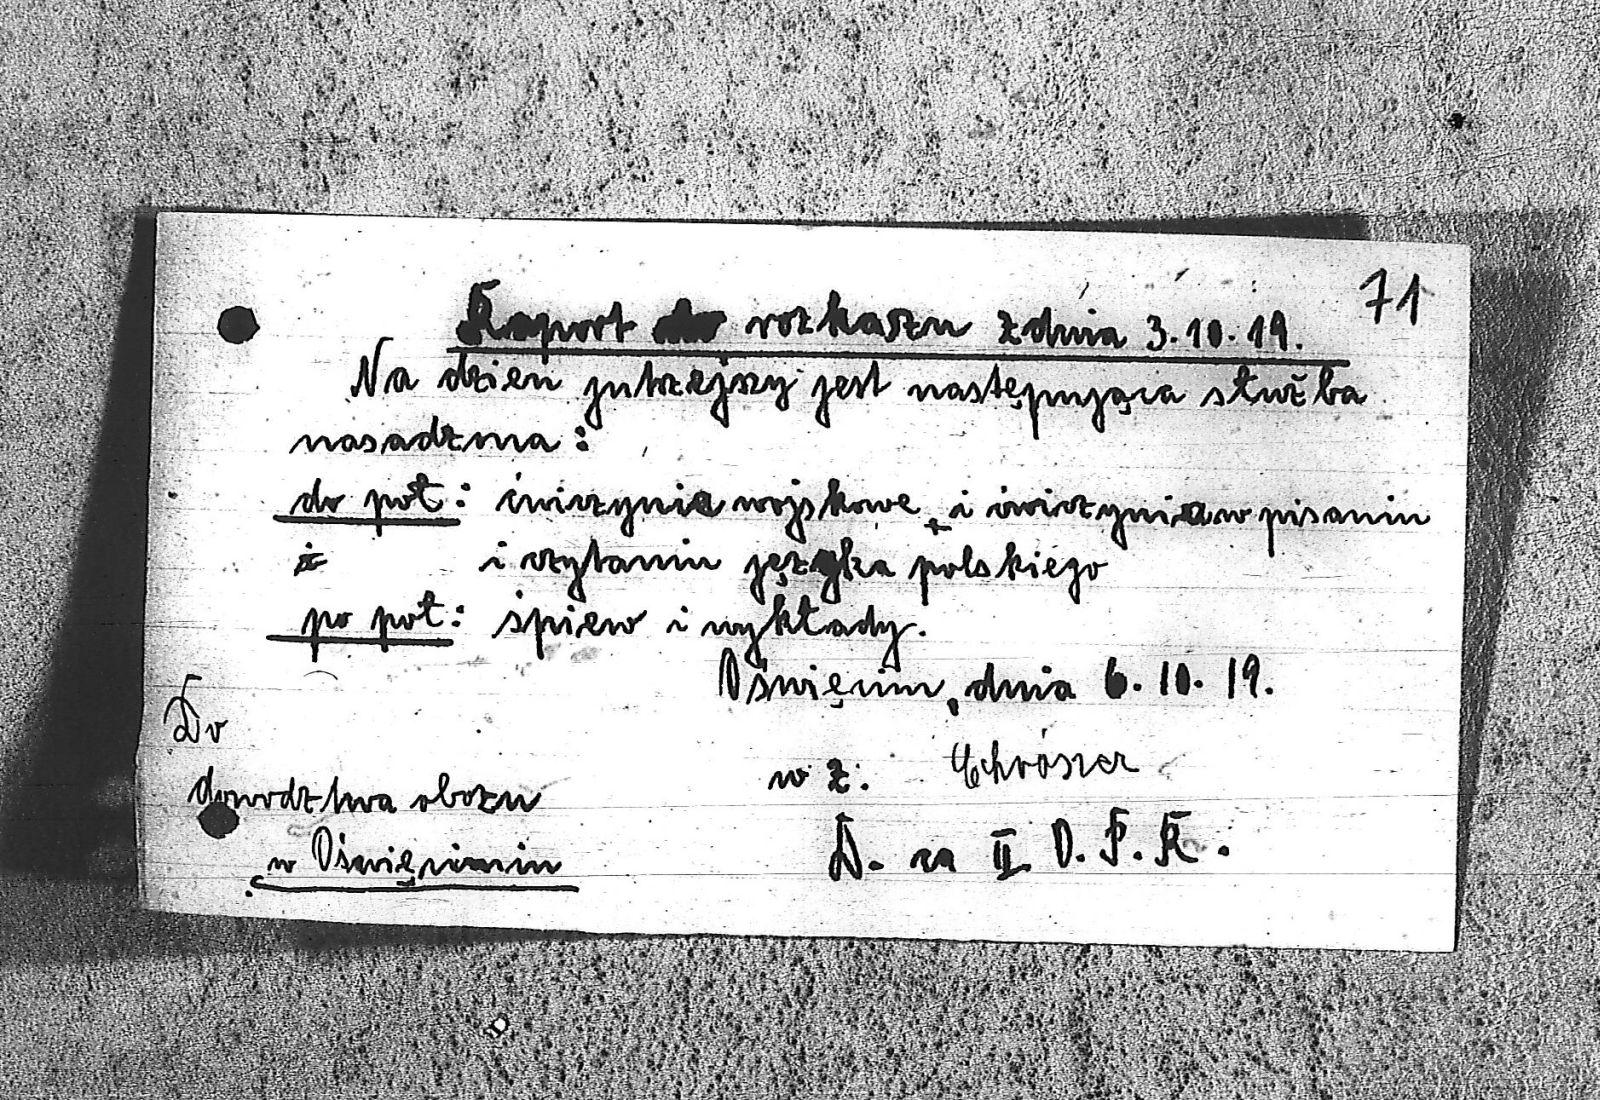 71
Raport do rozkazu z dnia 3.10.19.
Na dzien jutrzejszy jest następująca służba
nasadzma:
do poł: ćwiczynia wojskowe, i ćwiczynia w pisaniu
i czytaniu języka polskiego
po poł: śpiew i wykłady.
Oświęcim, dnia 6.10.19.
Do
w z.
dowodztwa obozu
w Oświęcimiu
D. za II O.P.R.